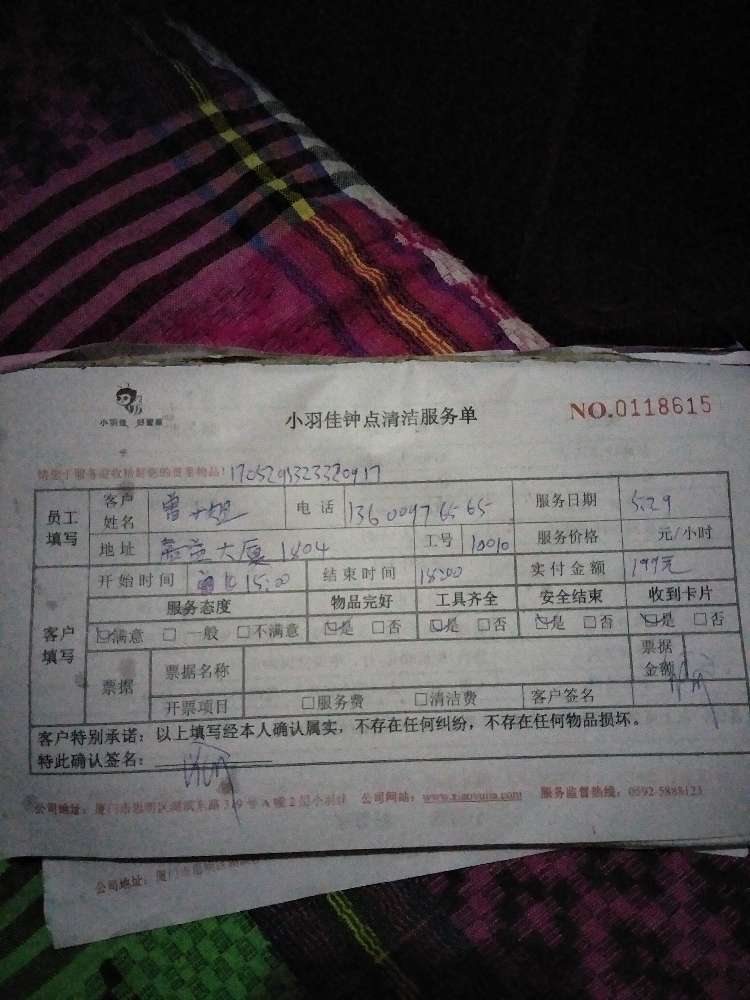 小羽佳 好管家
小羽佳钟点清洁服务单
NO.0118615
请您于服务验收前清点您的贵重物品!
员工填写 客户姓名 曾小姐 电话 13600976565 服务日期 5.29
地址 大厦1804 工号 10010 服务价格 元/小时
客户填写 开始时间 15:00 结束时间 18:00 实付金额 199元
服务态度 物品完好 工具齐全 安全结束 收到卡片
☑满意 □一般 □不满意 ☑是 □否 ☑是 □否 ☑是 □否 ☑是 □否
票据 票据名称 票据金额
开票项目 □服务费 □清洁费 客户签名
客户特别承诺:以上填写经本人确认属实,不存在任何纠纷,不存在任何物品损坏。
特此确认签名:
公司地址:厦门市思明区湖滨东路319号A幢2层小羽佳 公司网站:www.xiaoyujia.com 服务监督热线:0592 5888123
公司地址:厦门市思明区